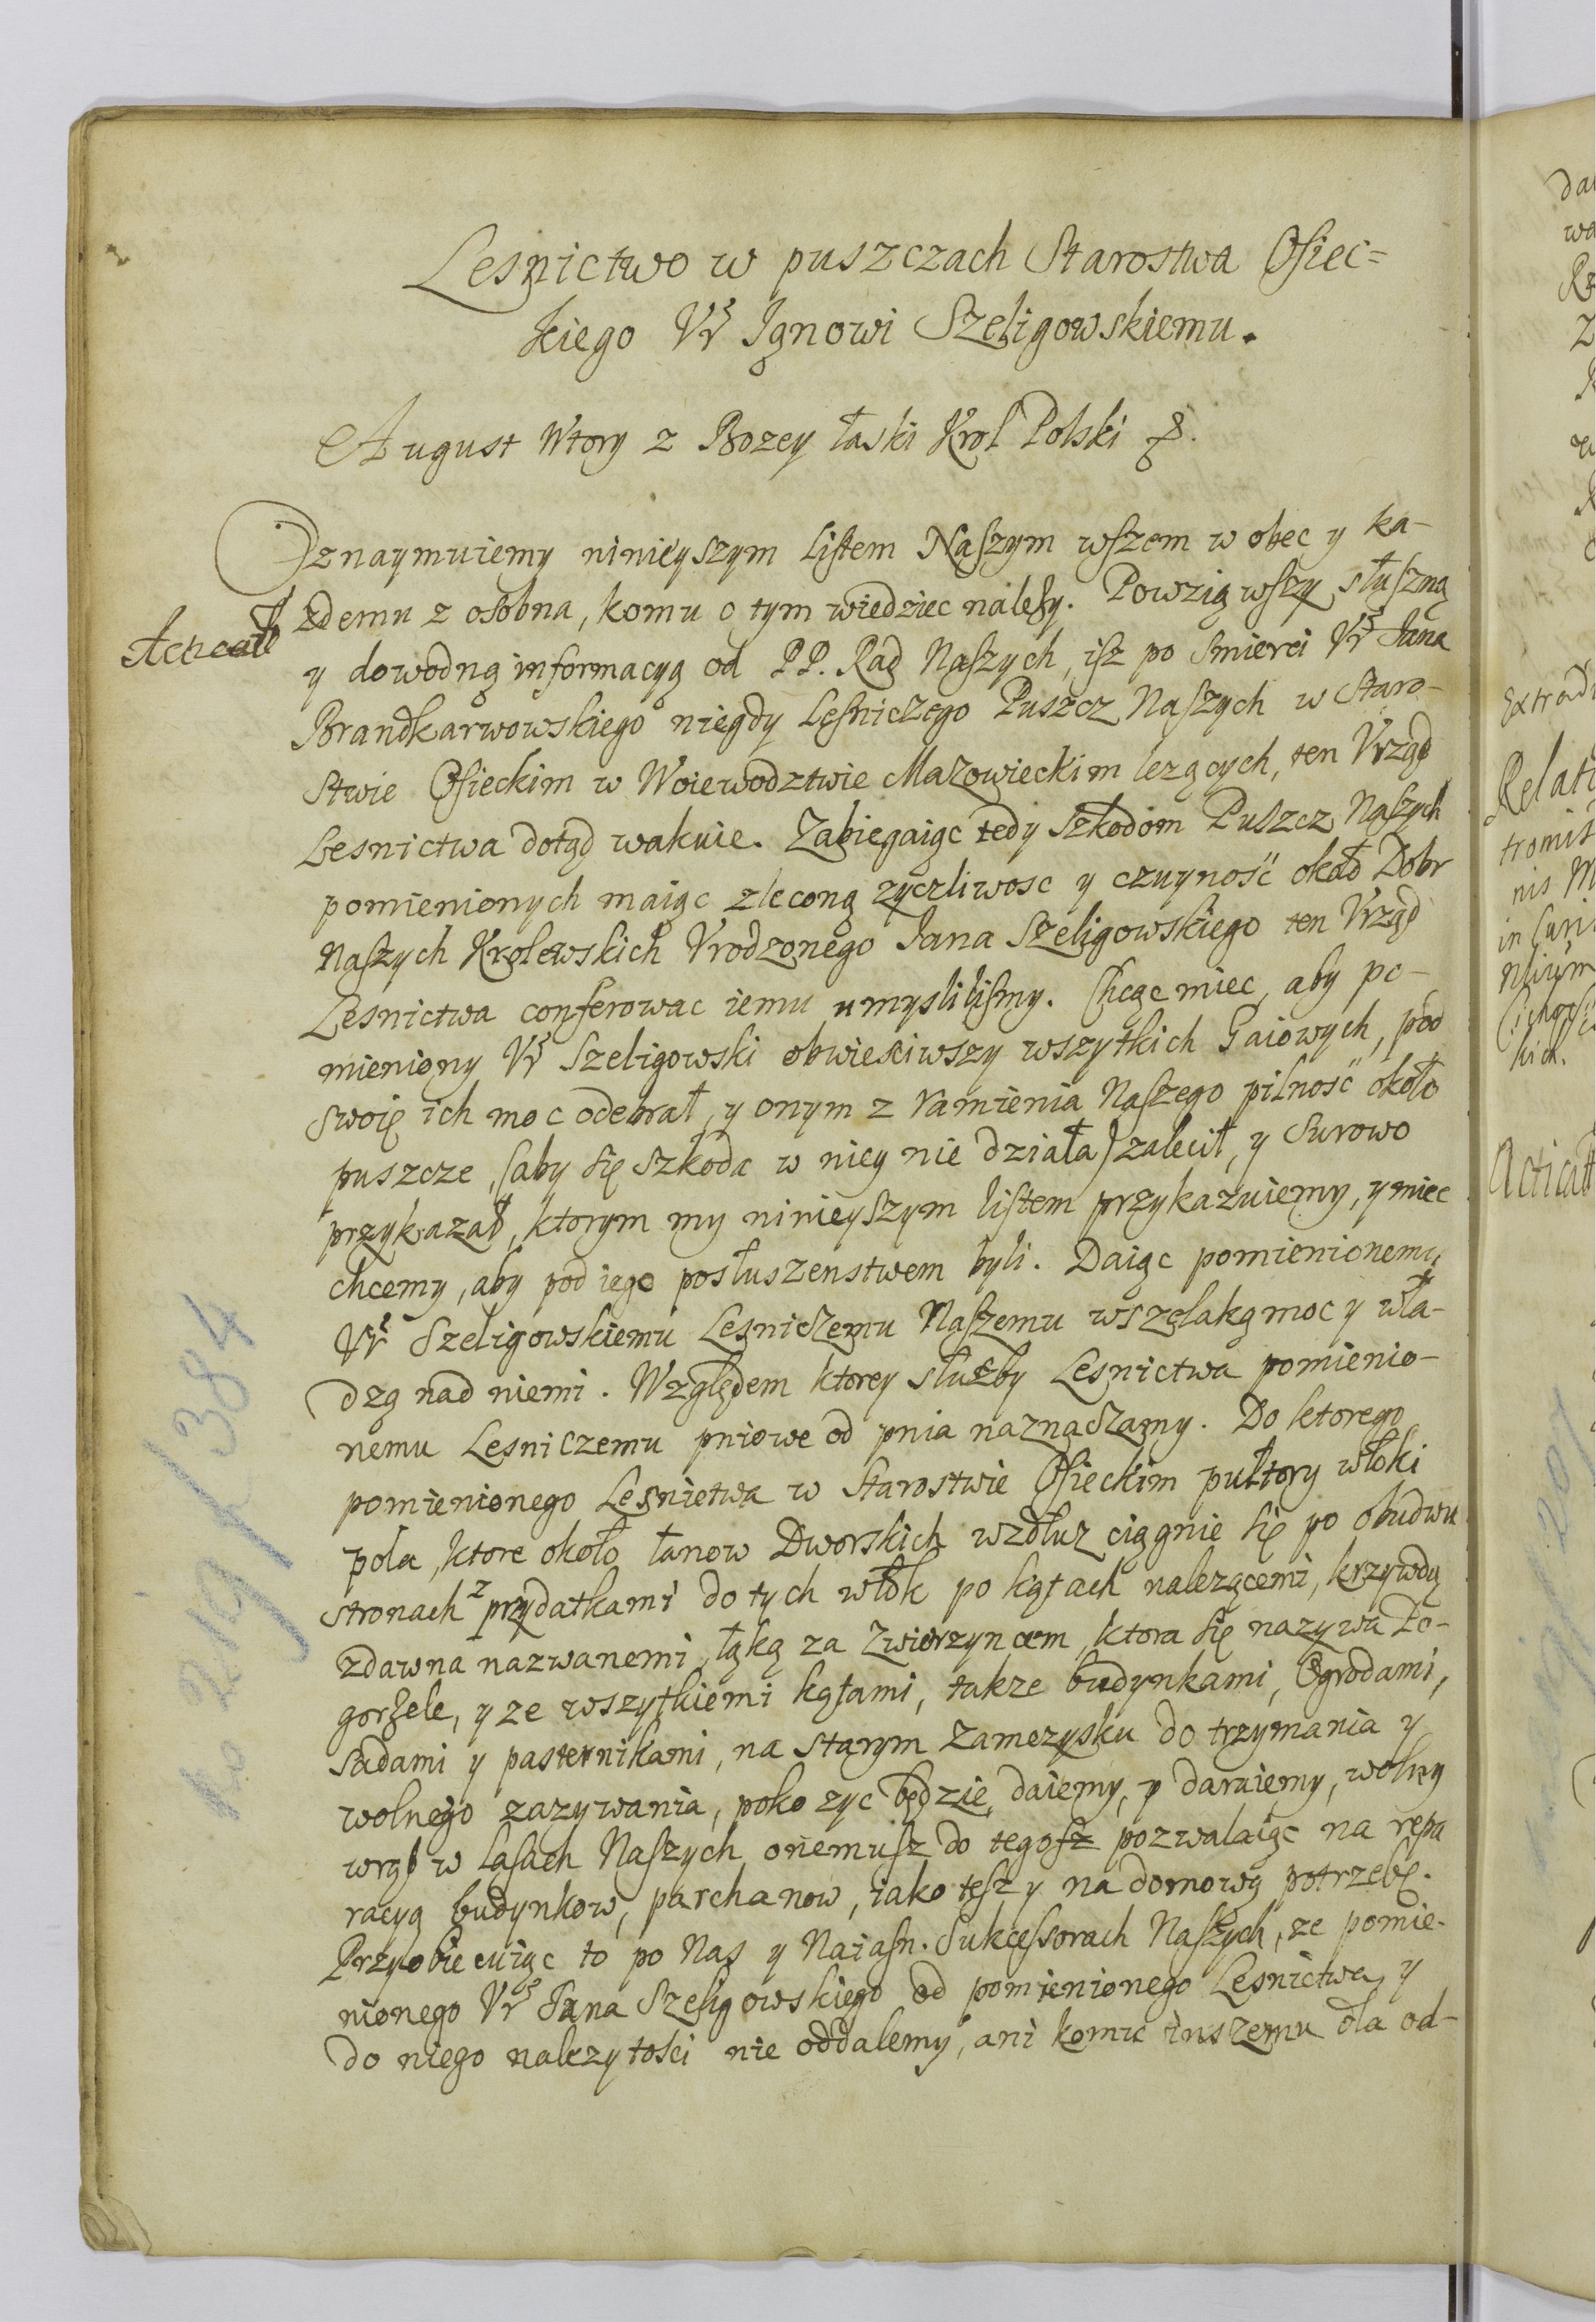 Lesnictwo w puszczach Starostwa Osiec=
kiego Vr Jgnowi Szeligowskiemu.
August Wtory z Bozey łaski Krol Polski &.
Oznaymuiemy ninieyszym listem Naszym wszem w obec y ka-
zdemu z osobna, komu o tym wiedziec nalezy. Powziąwszy słuszną
y dowodną informacyą od PP. Rad Naszych, isz po Smierci Vr Jana
Brandkarwowskiego niegdy Lesniczego Puszcz Naszych w Staro-
stwie Osieckim w Woiewodztwie Mazowieckim lezących, ten Vrząd
Lesnictwa dotąd wakuie. Zabiegaiąc tedy szkodom Puszcz Naszych
pomienionych maiąc zleconą zyczliwosc y czuyność około Dobr
Naszych Krolewskich Vrodzonego Jana Szeligowskiego ten Vrząd
Lesnictwa conferowac iemu umyslilismy. Chcąc miec, aby po-
mieniony Vr Szeligowski obwiesciwszy wszytkich Gaiowych, pod
swoię ich moc odebrał, y onym z ramienia Naszego pilność około
puszcze, (aby się szkoda w niey nie działa) zalecił, y surowo
przykazał, ktorym my ninieyszym listem przykazuiemy, y miec
chcemy, aby pod iego posłuszenstwem byli. Daiąc pomienionemu
Vr Szeligowskiemu Lesniczemu Naszemu wszelaką moc y wła-
dzą nad niemi. Względem ktorey służby Lesnictwa pomienio-
nemu Lesniczemu pniowe od pnia naznaczamy. Do ktorego
pomienionego Lesnictwa w Starostwie Osieckim pułtory włoki
pola, ktore około łanow Dworskich wzdłuz ciągnie się po obudwu
stronach z przydatkami do tych włok po kątach nalezącemi, krzywdą
zdawna nazwanemi, łąką za Zwierzyncem, ktora się nazywa Po-
gorzele, y ze wszytkiemi kątami, takze budynkami, Ogrodami,
sadami y pasternikami, na starym Zamczysku do trzymania y
wolnego zazywania, poko zyc będzie, daiemy, y daruiemy, wolny
wrąb w lasach Naszych onemusz do tegosz pozwalaiąc na repa
racyą budynkow, parchanow, iako tesz y na domową potrzebę.
Przyobiecuiąc to po Nas y Naiasn. Sukcessorach Naszych, ze pomie-
nionego Vr Jana Szeligowskiego od pomienionego Lesnictwa, y
do niego nalezytości nie oddalemy, ani komu inszemu dla od-
Relat